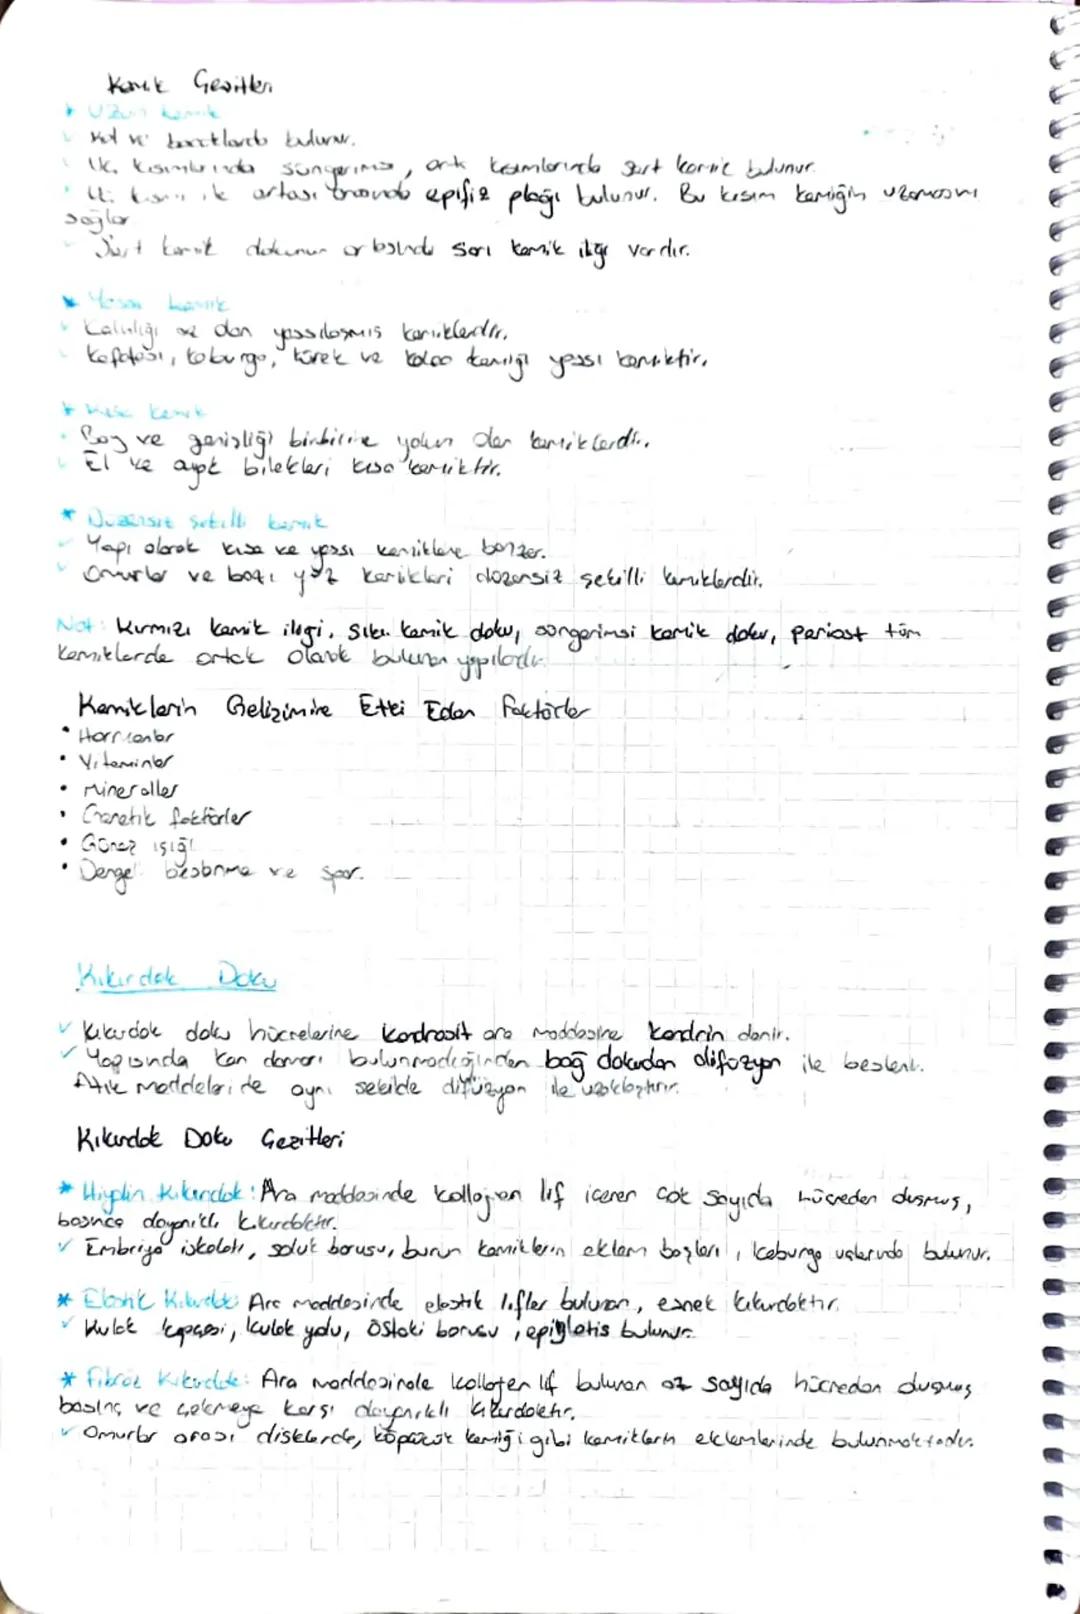 Kemik Çeşitleri
* Uzun kemik
Kol ve bacaklarda bulunur.
Uç kısımlarında süngerimsi, orta kısımlarında sert kemik bulunur.
Uç kısmı ile ortası arasında epifiz plağı bulunur. Bu kısım kemiğin uzamasını
sağlar
Sert kemik dokunun ortasında sarı kemik iliği vardır.
* Yassı kemik
Kalınlığı az olan yassılaşmış kemiklerdir.
Kafatası, kaburga, kürek ve kalça kemiği yassı kemiktir.
* Kısa kemik
Boy ve genişliği birbirine yakın olan kemiklerdir.
El ve ayak bilekleri kısa kemiktir.
* Düzensiz şekilli kemik
Yapı olarak kısa ve yassı kemiklere benzer.
Omurlar ve bazı yüz kemikleri düzensiz şekilli kemiklerdir.
Not: Kırmızı kemik iliği, sıkı kemik doku, süngerimsi kemik doku, periost tüm
kemiklerde ortak olarak bulunan yapılardır.
Kemiklerin Gelişimine Etki Eden Faktörler
• Hormonlar
• Vitaminler
• Mineraller
• Genetik faktörler
• Güneş ışığı
• Dengeli beslenme ve spor.
Kıkırdak Doku
✓ Kıkırdak doku hücrelerine kondrosit ara maddesine kondrin denir.
✓ Yapısında kan damarı bulunmadığından bağ dokudan difüzyon ile beslenir.
Atık maddeleri de aynı şekilde difüzyon ile uzaklaştırır.
Kıkırdak Doku Çeşitleri
* Hiyalin Kıkırdak: Ara maddesinde kollajen lif içeren çok sayıda hücreden oluşmuş,
basınca dayanıklı kıkırdaktır.
✓ Embriyo iskeleti, soluk borusu, burun kemiklerin eklem başları, kaburga uçlarında bulunur.
* Elastik Kıkırdak: Ara maddesinde elastik lifler bulunan, esnek kıkırdaktır.
✓ Kulak kepçesi, kulak yolu, östaki borusu, epiglotis bulunur.
* Fibröz Kıkırdak: Ara maddesinde kollajen lif bulunan az sayıda hücreden oluşmuş
basınç ve çekmeye karşı dayanıklı kıkırdaktır.
✓ Omurlar arası disklerde, köprücük kemiği gibi kemiklerin eklemlerinde bulunmaktadır.